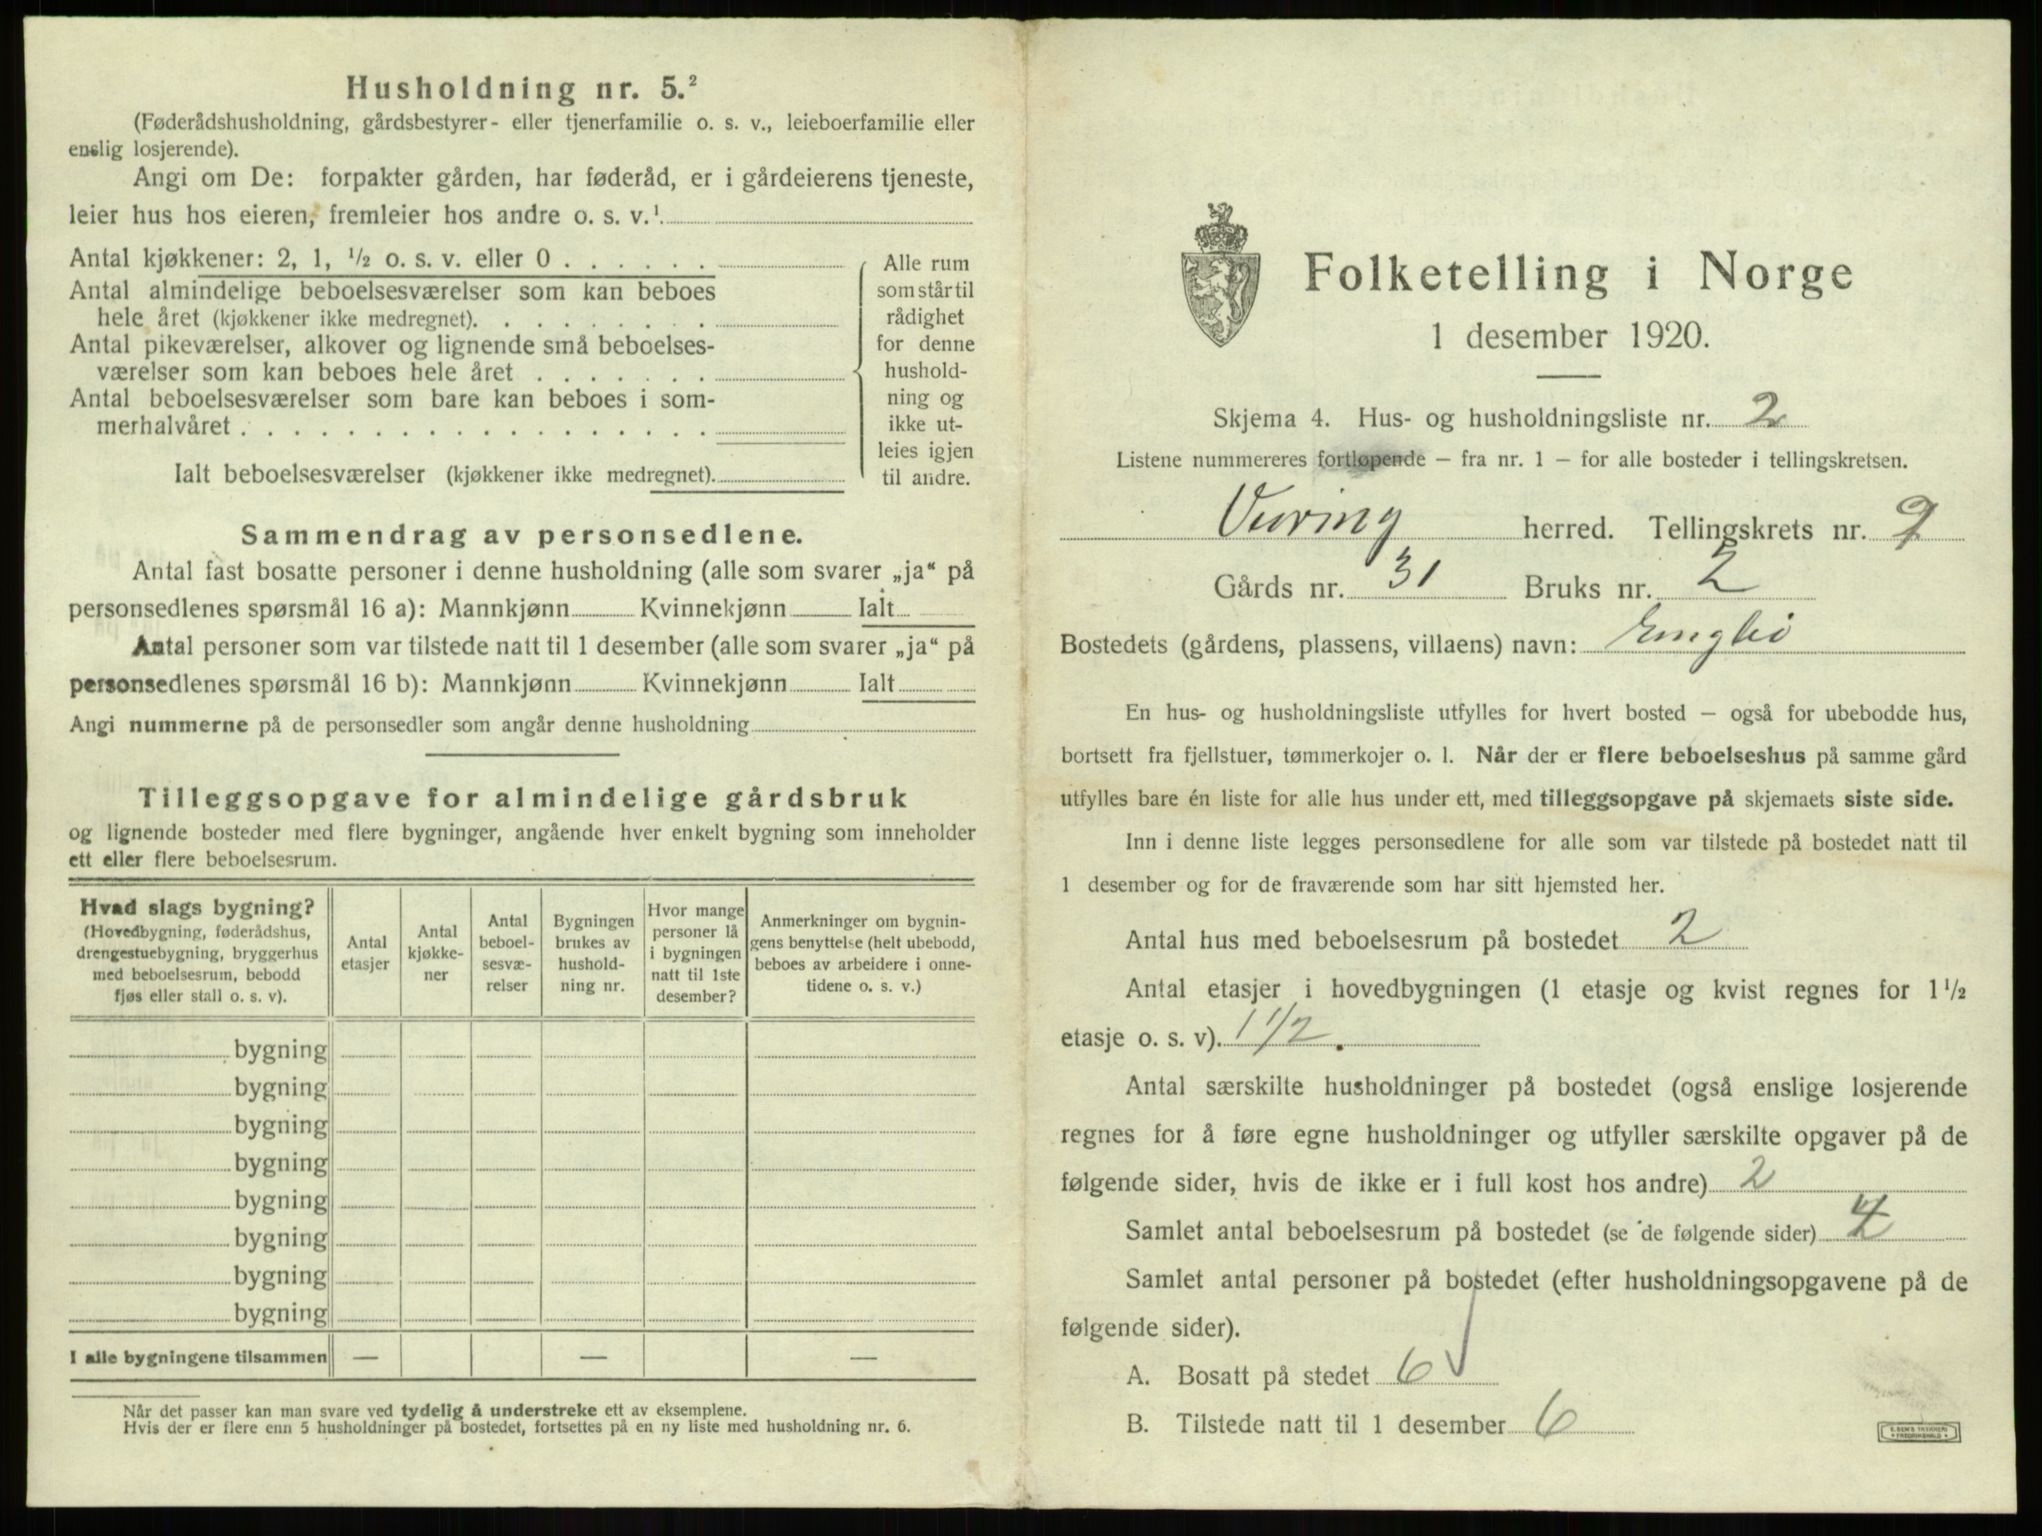 Husholdning nr. 5.²
(Føderådshusholdning, gårdsbestyrer- eller tjenerfamilie o. s. v., leieboerfamilie eller
enslig losjerende).
Angi om De: forpakter gården, har føderåd, er i gårdeierens tjeneste,
leier hus hos eieren, fremleier hos andre o. s. v.¹
Antal kjøkkener: 2, 1, ½ o. s. v. eller 0 . . . . . .
Antal almindelige beboelsesværelser som kan beboes
hele året (kjøkkener ikke medregnet). . . . . . . . .
Antal pikeværelser, alkover og lignende små beboelses-
værelser som kan beboes hele året . . . . . . .
Antal beboelsesværelser som bare kan beboes i som-
merhalvåret . . . . . . . . . . . . . . . . . .
Ialt beboelsesværelser (kjøkkener ikke medregnet).
Alle rum
som står til
rådighet
for denne
hushold-
ning og
ikke ut-
leies igjen
til andre.
Sammendrag av personsedlene.
Antal fast bosatte personer i denne husholdning (alle som svarer „ja“ på
personsedlenes spørsmål 16 a): Mannkjønn Kvinnekjønn Ialt
Antal personer som var tilstede natt til 1 desember (alle som svarer „ja“ på
personsedlenes spørsmål 16 b): Mannkjønn Kvinnekjønn Ialt
Angi nummerne på de personsedler som angår denne husholdning
Tilleggsopgave for almindelige gårdsbruk
og lignende bosteder med flere bygninger, angående hver enkelt bygning som inneholder
ett eller flere beboelsesrum.
Hvad slags bygning?
(Hovedbygning, føderådshus,
drengestuebygning, bryggerhus
med beboelsesrum, bebodd
fjøs eller stall o. s. v).
Antal
etasjer
Antal
kjøkke-
ner
Antal
beboel-
sesvæ-
relser
Bygningen
brukes av
hushold-
ning nr.
Hvor mange
personer lå
i bygningen
natt til 1ste
desember?
Anmerkninger om bygnin-
gens benyttelse (helt ubebodd,
beboes av arbeidere i onne-
tidene o. s. v.)
bygning
bygning
bygning
bygning
bygning
bygning
bygning
bygning
I alle bygningene tilsammen — — —
Når det passer kan man svare ved tydelig å understreke ett av eksemplene.
Hvis der er flere enn 5 husholdninger på bostedet, fortsettes på en ny liste med husholdning nr. 6.
Folketelling i Norge
1 desember 1920.
Skjema 4. Hus- og husholdningsliste nr. 2
Listene nummereres fortløpende – fra nr. 1 – for alle bosteder i tellingskretsen.
Vevring herred. Tellingskrets nr. 2
Gårds nr. 31 Bruks nr. 2
Bostedets (gårdens, plassens, villaens) navn: Engbø
En hus- og husholdningsliste utfylles for hvert bosted – også for ubebodde hus,
bortsett fra fjellstuer, tømmerkojer o. l. Når der er flere beboelseshus på samme gård
utfylles bare én liste for alle hus under ett, med tilleggsopgave på skjemaets siste side.
Inn i denne liste legges personsedlene for alle som var tilstede på bostedet natt til
1 desember og for de fraværende som har sitt hjemsted her.
Antal hus med beboelsesrum på bostedet 2
Antal etasjer i hovedbygningen (1 etasje og kvist regnes for 1½
etasje o. s. v). 1 1/2.
Antal særskilte husholdninger på bostedet (også enslige losjerende
regnes for å føre egne husholdninger og utfyller særskilte opgaver på de
følgende sider, hvis de ikke er i full kost hos andre) 2
Samlet antal beboelsesrum på bostedet (se de følgende sider) 4
Samlet antal personer på bostedet (efter husholdningsopgavene på de
følgende sider).
A. Bosatt på stedet 6
B. Tilstede natt til 1 desember 6